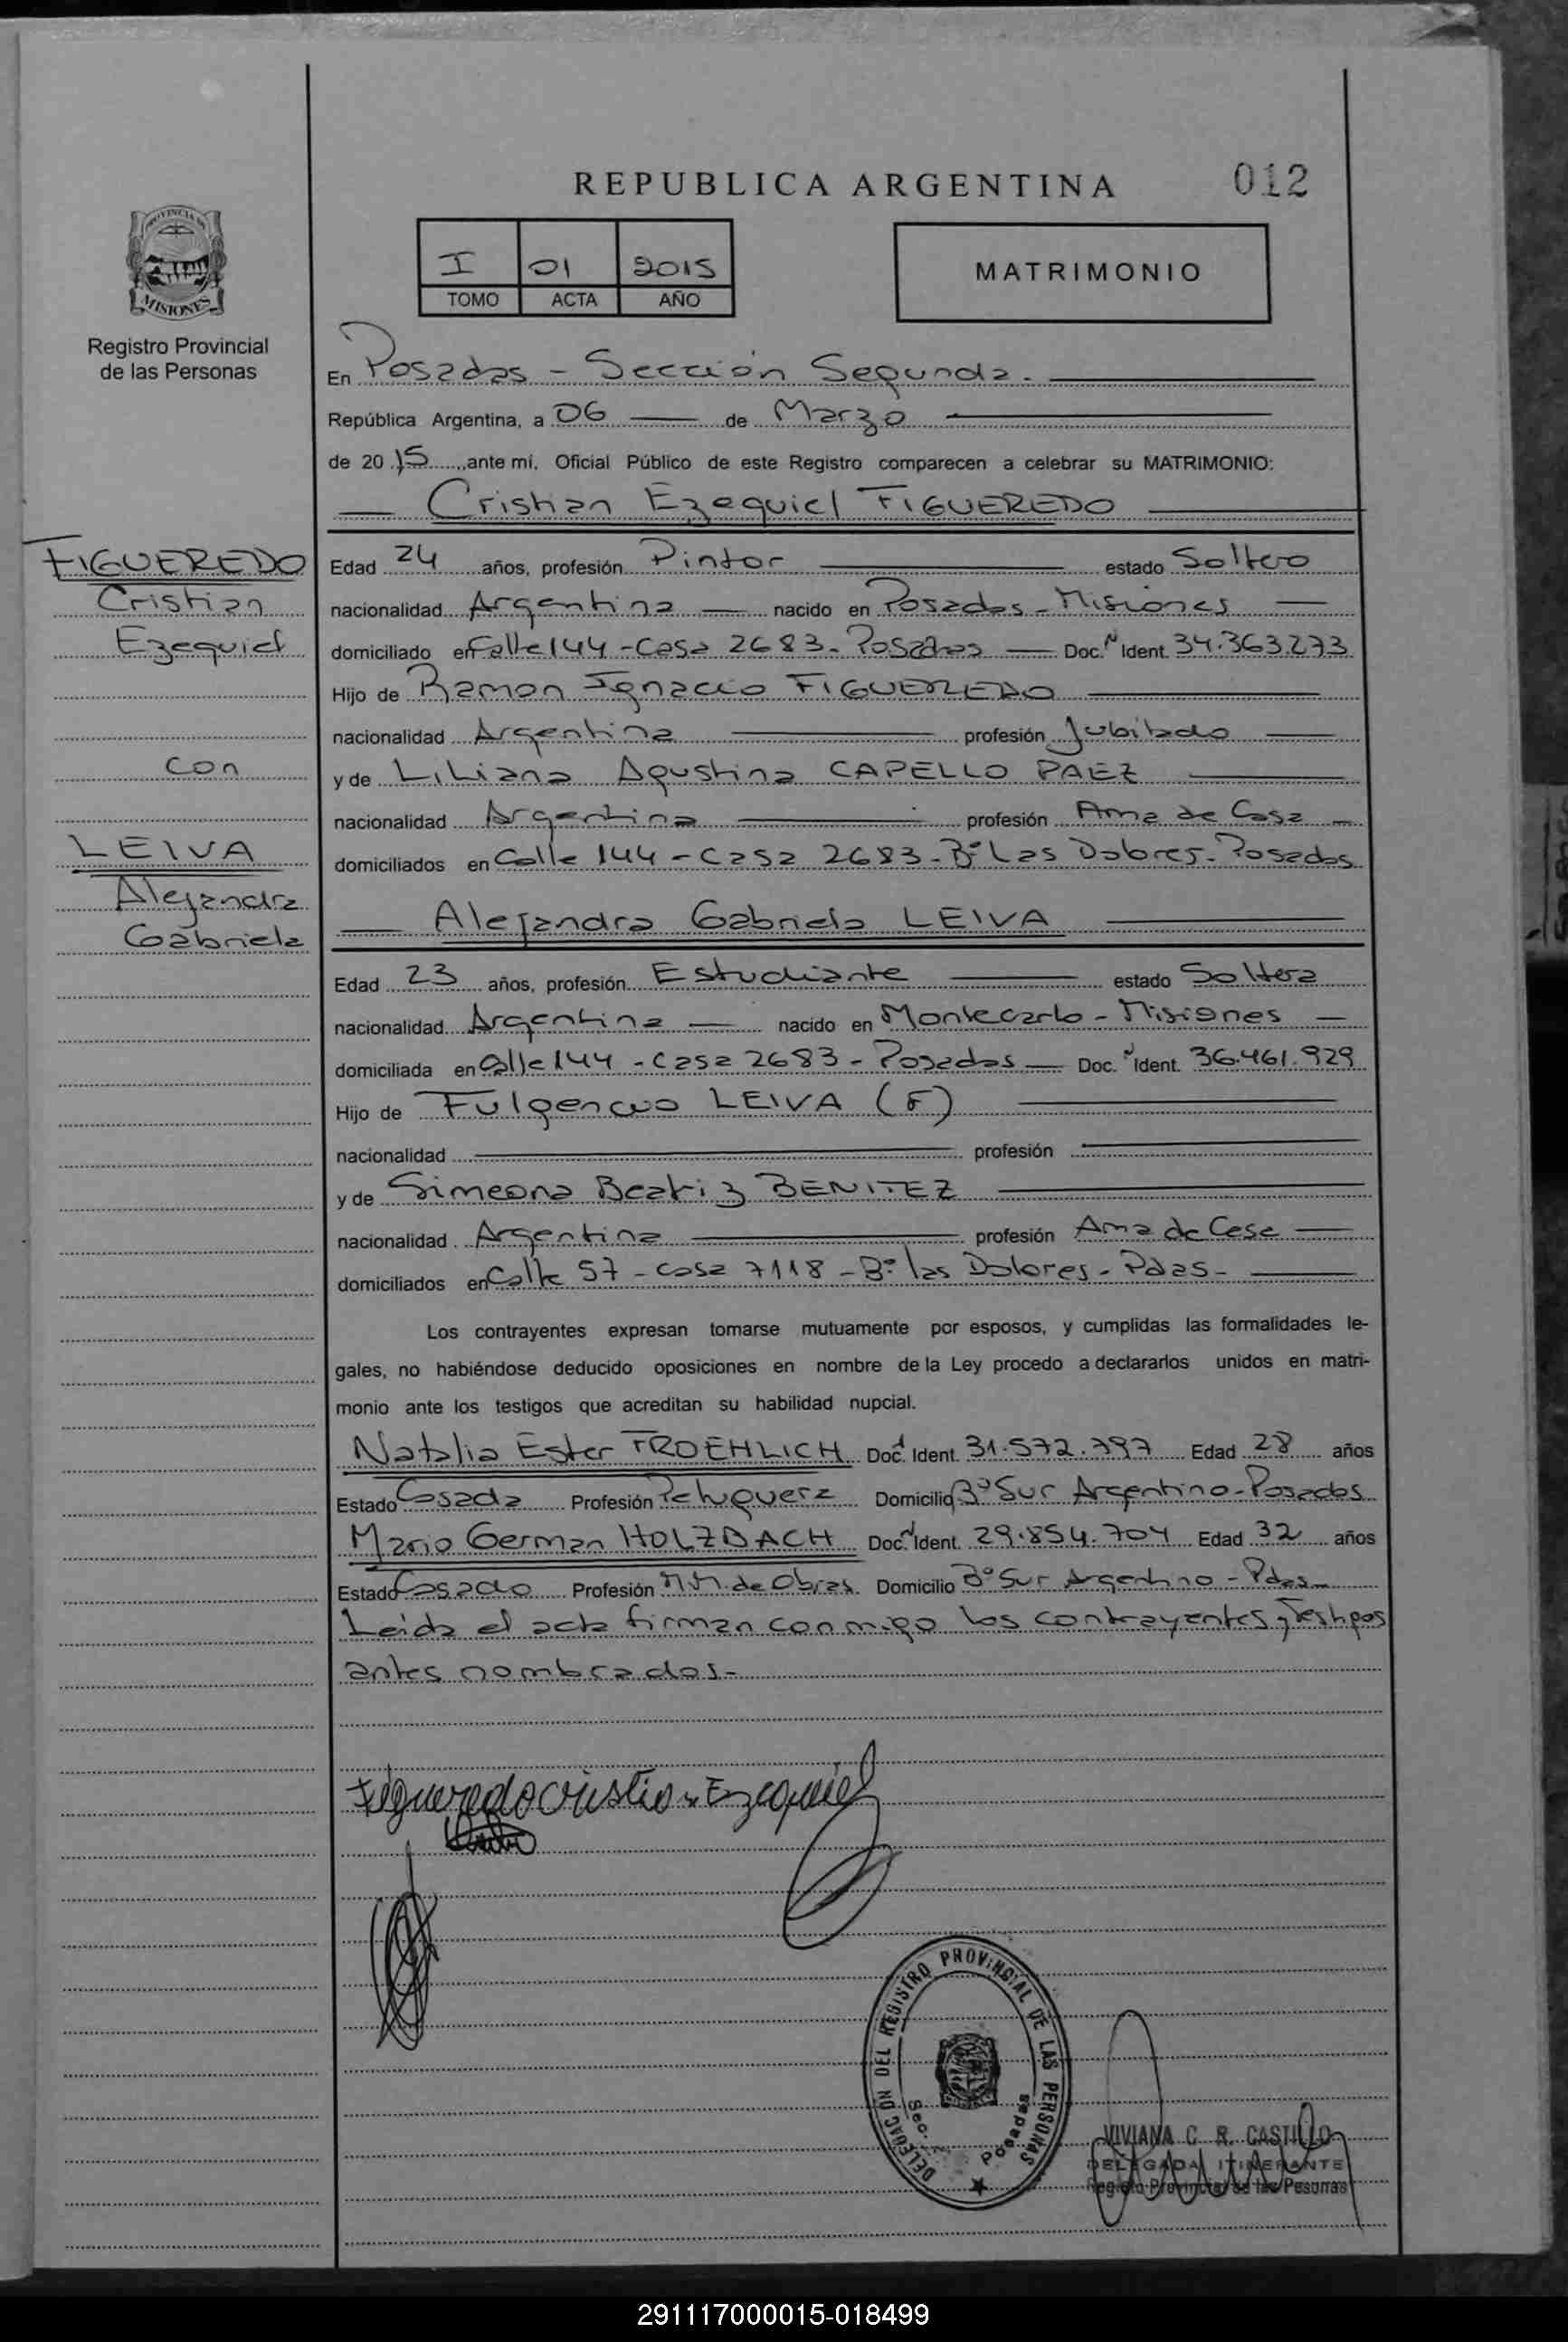 REPUBLICA ARGENTINA
012
PROVINCIA DE
MISIONES
Registro Provincial
de las Personas
I 01 2015
TOMO ACTA AÑO
MATRIMONIO
En Posadas - Sección Segunda.
República Argentina, a 06 de Marzo
de 2015, ante mí, Oficial Público de este Registro comparecen a celebrar su MATRIMONIO:
Cristian Ezequiel FIGUEREDO
FIGUEREDO
Cristian
Ezequiel
con
LEIVA
Alejandra
Gabriela
Edad 24 años, profesión Pintor estado Soltero
nacionalidad Argentina nacido en Posadas - Misiones
domiciliado en Calle 144 - Casa 2683 - Posadas Doc. N Ident. 34.363.273
Hijo de Ramon Ignacio FIGUEREDO
nacionalidad Argentina profesión Jubilado
y de Liliana Agustina CAPELLO PAEZ
nacionalidad Argentina profesión Ama de Casa
domiciliados en Calle 144 - Casa 2683 - Bº Las Dolores - Posadas
Alejandra Gabriela LEIVA
Edad 23 años, profesión Estudiante estado Soltera
nacionalidad Argentina nacido en Montecarlo - Misiones
domiciliada en Calle 144 - Casa 2683 - Posadas Doc. N Ident. 36.461.929
Hijo de Fulgencio LEIVA (F)
nacionalidad profesión
y de Simeona Beatriz BENITEZ
nacionalidad Argentina profesión Ama de Casa
domiciliados en Calle 57 - Casa 7118 - Bº las Dolores - Pdas -
Los contrayentes expresan tomarse mutuamente por esposos, y cumplidas las formalidades le-
gales, no habiéndose deducido oposiciones en nombre de la Ley procedo a declararlos unidos en matri-
monio ante los testigos que acreditan su habilidad nupcial.
Natalia Ester FROEHLICH Doc. Ident. 31.572.797 Edad 28 años
Estado Casada Profesión Peluquera Domicilio Bº Sur Argentino - Posadas
Mario German HOLZBACH Doc. N Ident. 29.854.704 Edad 32 años
Estado Casado Profesión M.M. de Obras Domicilio Bº Sur Argentino - Pdas
Leída el acta firman conmigo los contrayentes y Testigos
antes nombrados -
Figueredo Cristian Ezequiel
DELEGACIÓN DEL REGISTRO PROVINCIAL DE LAS PERSONAS
Sec.
Posadas
VIVIANA C. R. CASTILLO
DELEGADA ITINERANTE
Registro Provincial de las Pesonas
291117000015-018499